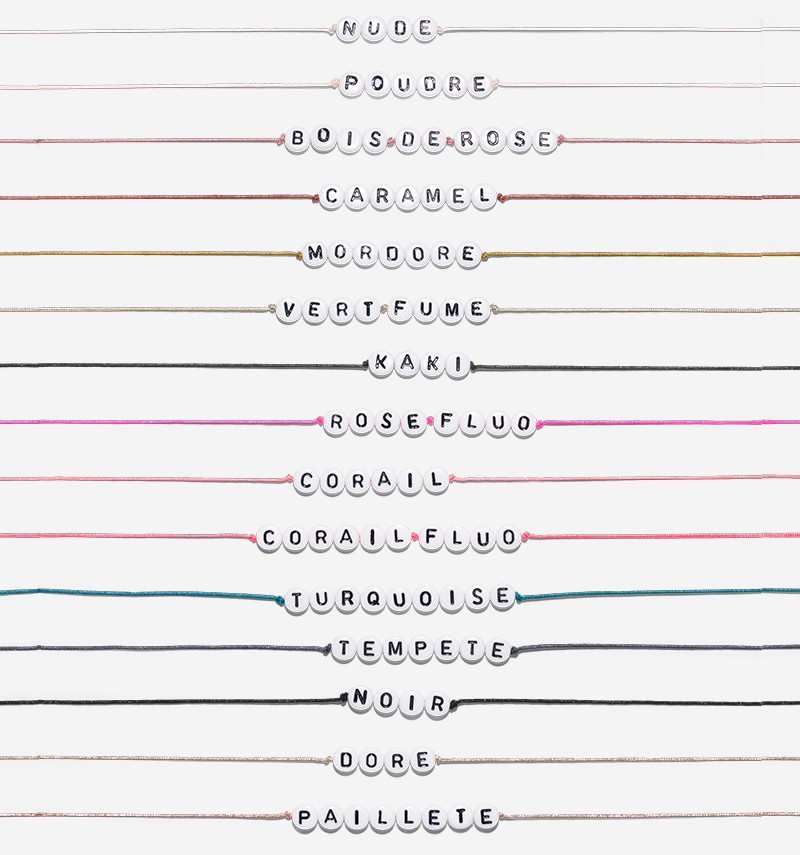 NUDE
POUDRE
BOIS DE ROSE
CARAMEL
MORDORE
VERT FUME
KAKI
ROSE FLUO
CORAIL
CORAIL FLUO
TURQUOISE
TEMPETE
NOIR
DORE
PAILLETE